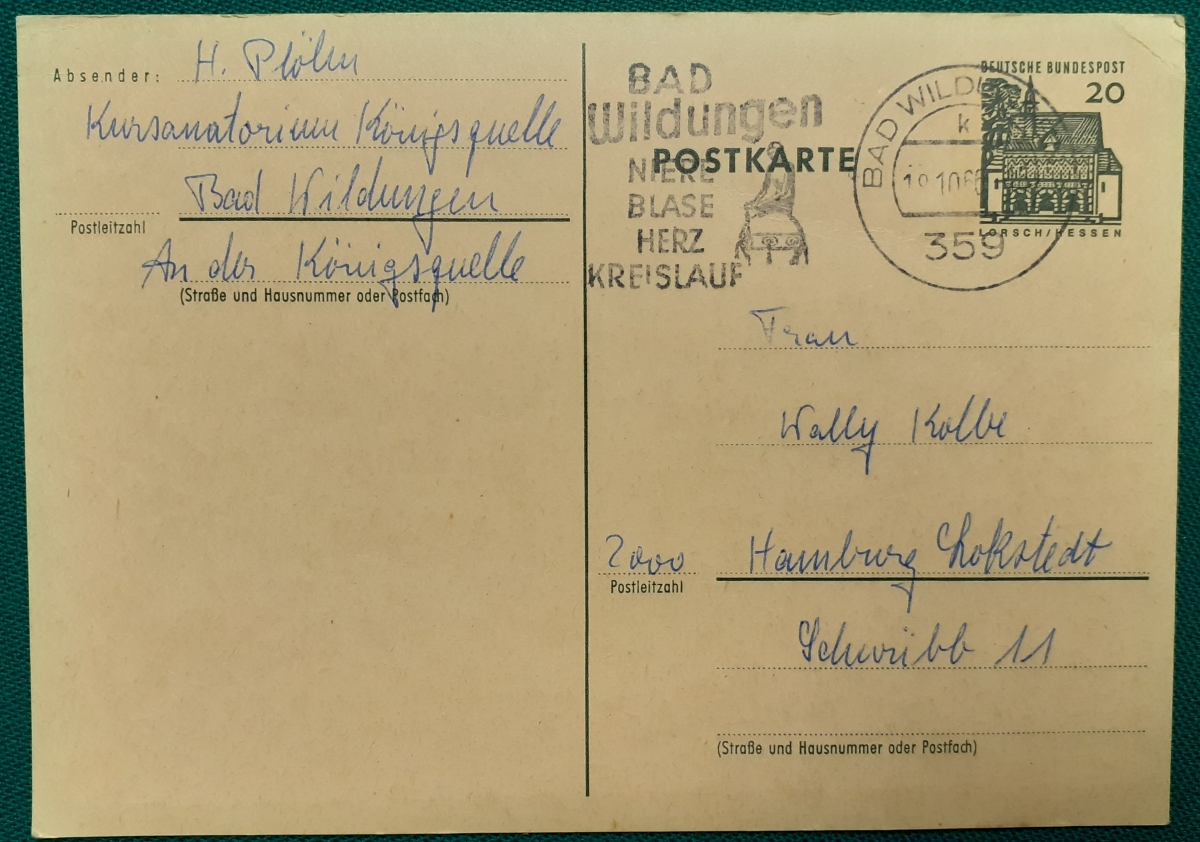 Absender: H. Plöhn
Kursanatorium Königsquelle
Bad Wildungen
Postleitzahl
An der Königsquelle
(Straße und Hausnummer oder Postfach)
BAD
Wildungen
NIERE
BLASE
HERZ
KREISLAUF
POSTKARTE
BAD
k
359
DEUTSCHE BUNDESPOST
20
LORSCH/HESSEN
Frau
Wally Kolbe
2000 Hamburg Lokstedt
Postleitzahl
11
(Straße und Hausnummer oder Postfach)